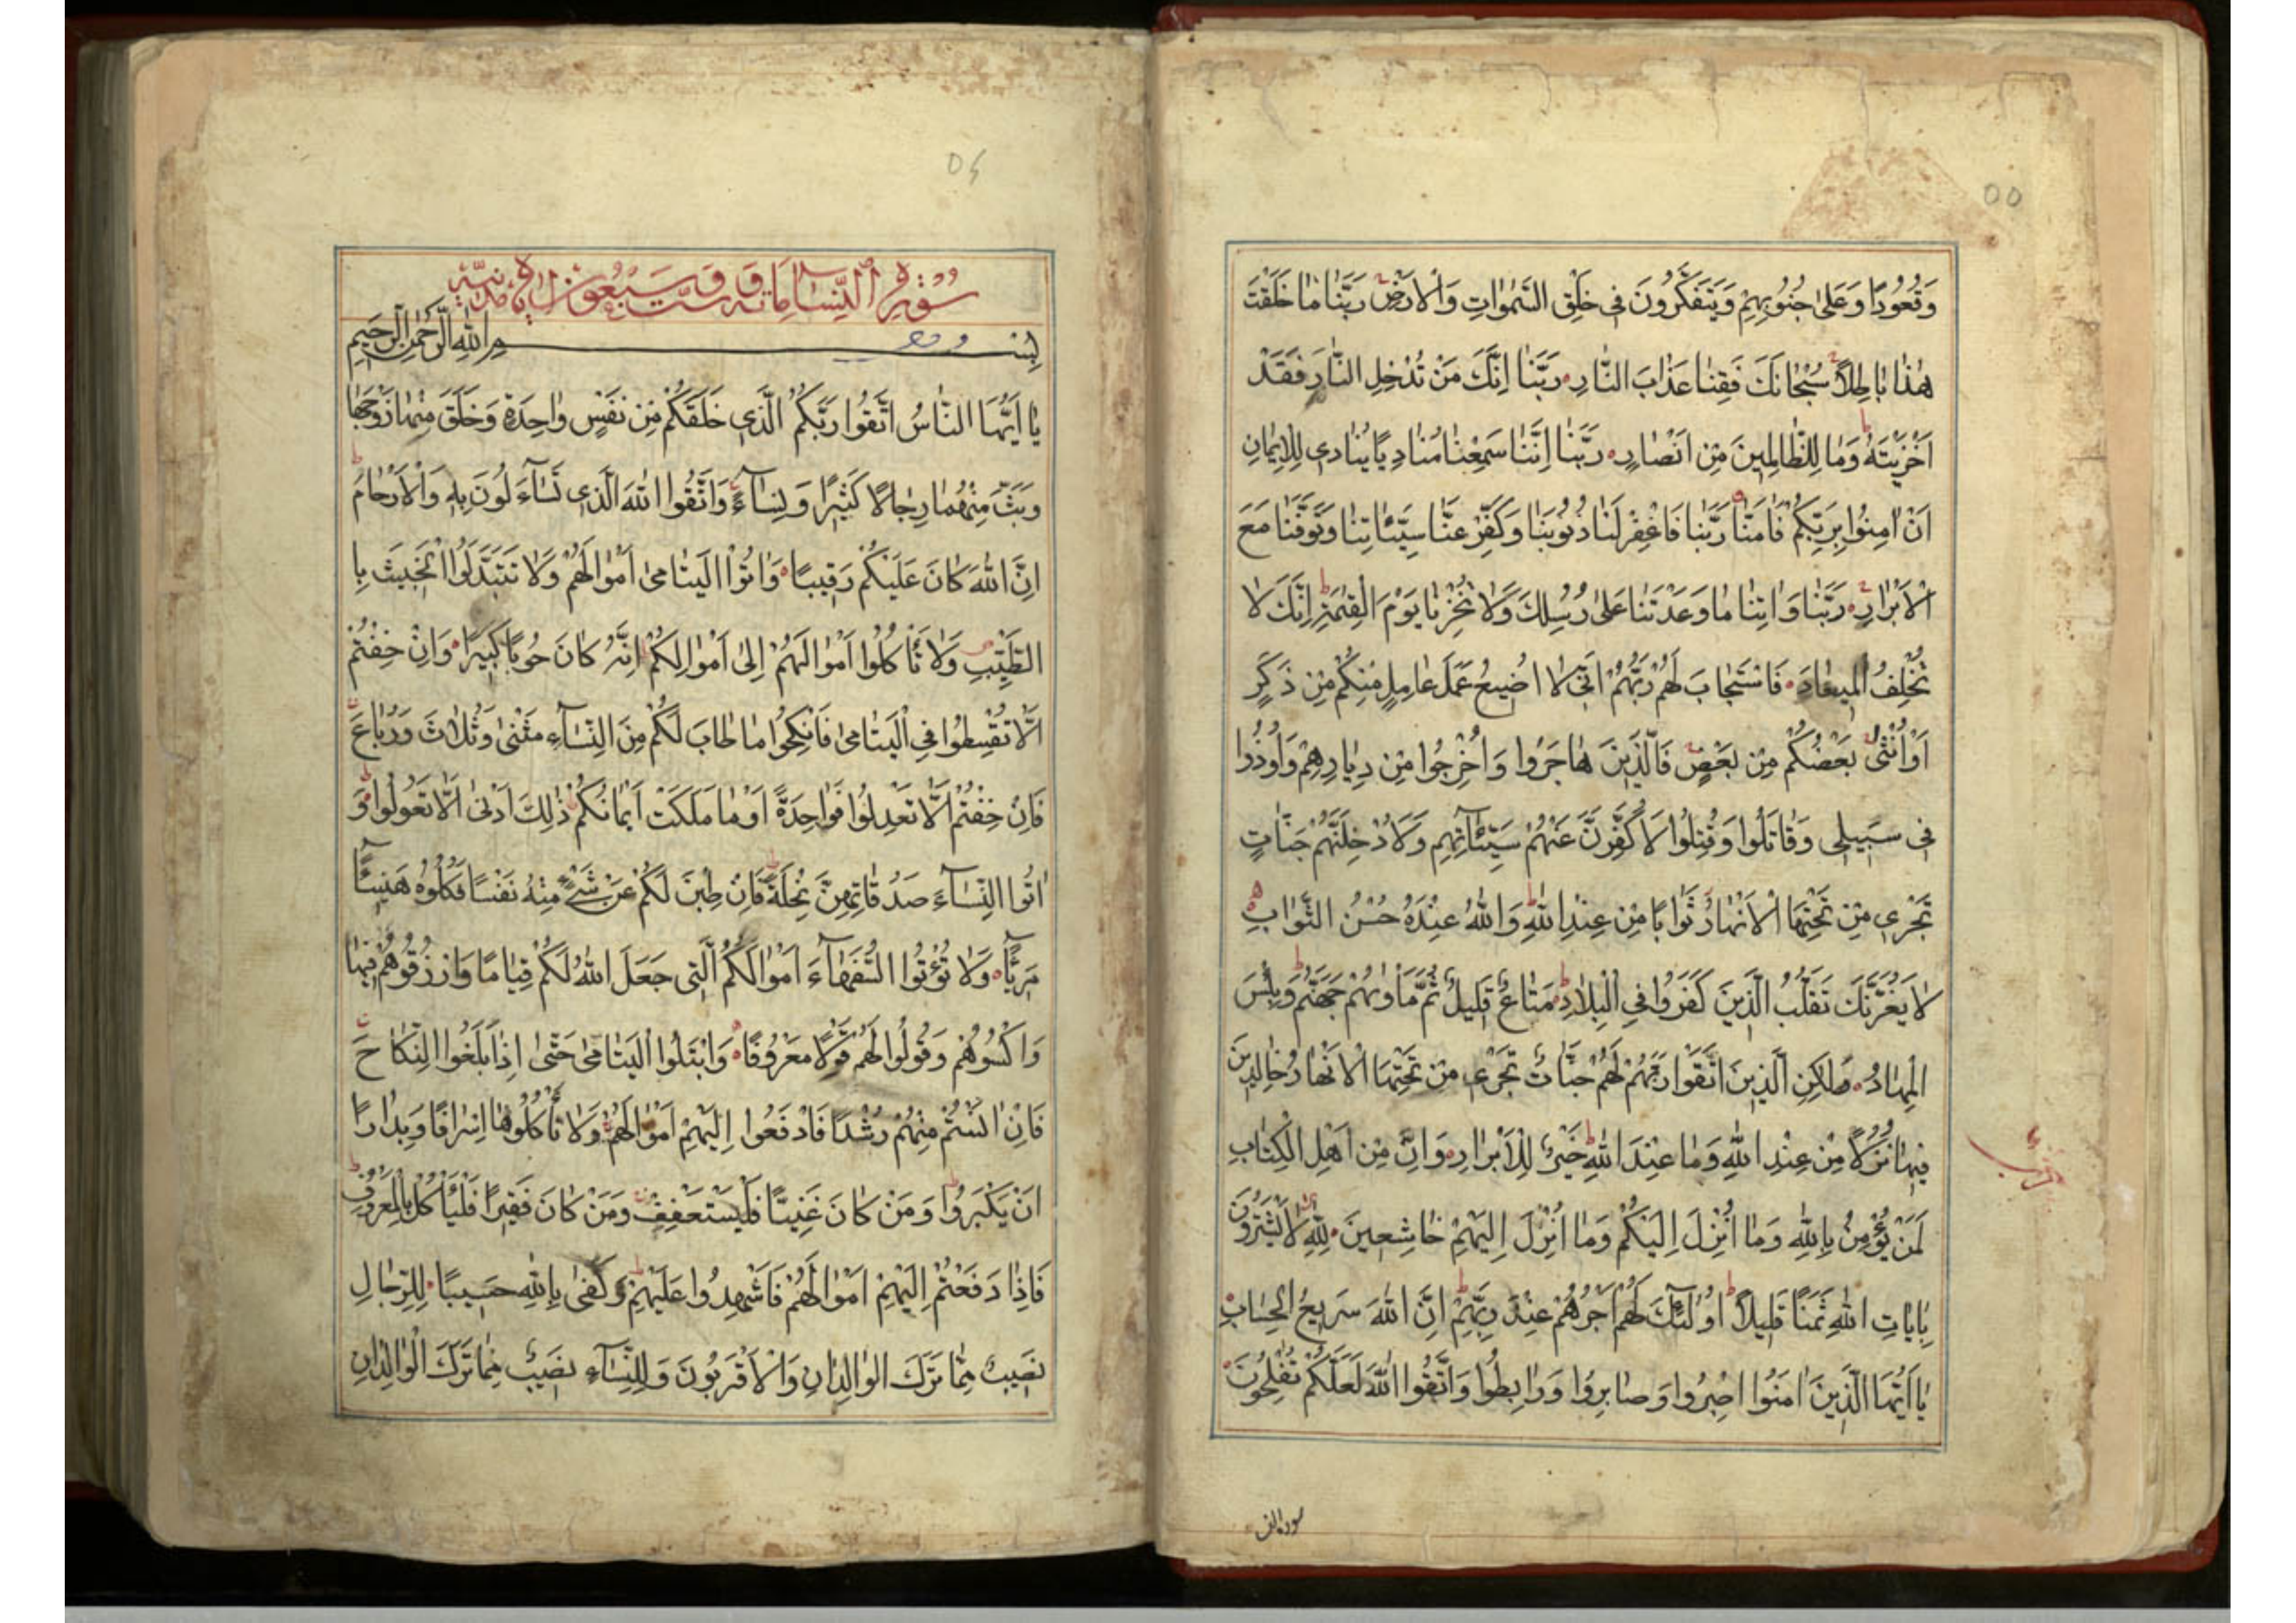 ٥٥
وَقُعُودًا وَعَلىٰ جُنُوبِهِمْ وَيَتَفَكَّرُونَ فى خَلْقِ السَّمٰوَاتِ وَالْاَرْضِ رَبَّنَا مَا خَلَقْتَ
هٰذَا بَاطِلاً سُبْحَانَكَ فَقِنَا عَذَابَ النَّارِ رَبَّنَا اِنَّكَ مَنْ تُدْخِلِ النَّارَ فَقَدْ
اَخْزَيْتَهُ وَمَا لِلظَّالِمِينَ مِنْ اَنْصَارٍ رَبَّنَا اِنَّنَا سَمِعْنَا مُنَادِيًا يُنَادى لِلْاِيمَانِ
اَنْ اٰمِنُوا بِرَبِّكُمْ فَاٰمَنَّا رَبَّنَا فَاغْفِرْ لَنَا ذُنُوبَنَا وَكَفِّرْ عَنَّا سَيِّئَاتِنَا وَتَوَفَّنَا مَعَ
الْاَبْرَارِ رَبَّنَا وَاٰتِنَا مَا وَعَدْتَنَا عَلىٰ رُسُلِكَ وَلَا تُخْزِنَا يَوْمَ الْقِيٰمَةِ اِنَّكَ لَا
تُخْلِفُ الْمِيعَادَ فَاسْتَجَابَ لَهُمْ رَبُّهُمْ اَنّى لَا اُضِيعُ عَمَلَ عَامِلٍ مِنْكُمْ مِنْ ذَكَرٍ
اَوْ اُنْثىٰ بَعْضُكُمْ مِنْ بَعْضٍ فَالَّذِينَ هَاجَرُوا وَاُخْرِجُوا مِنْ دِيَارِهِمْ وَاُوذُوا
فى سَبِيلى وَقَاتَلُوا وَقُتِلُوا لَاُكَفِّرَنَّ عَنْهُمْ سَيِّئَاتِهِمْ وَلَاُدْخِلَنَّهُمْ جَنَّاتٍ
تَجْرى مِنْ تَحْتِهَا الْاَنْهَارُ ثَوَابًا مِنْ عِنْدِ اللّٰهِ وَاللّٰهُ عِنْدَهُ حُسْنُ الثَّوَابِ
لَا يَغُرَّنَّكَ تَقَلُّبُ الَّذِينَ كَفَرُوا فِى الْبِلَادِ مَتَاعٌ قَلِيلٌ ثُمَّ مَأْوٰىهُمْ جَهَنَّمُ وَبِئْسَ
الْمِهَادُ لٰكِنِ الَّذِينَ اتَّقَوْا رَبَّهُمْ لَهُمْ جَنَّاتٌ تَجْرى مِنْ تَحْتِهَا الْاَنْهَارُ خَالِدِينَ
فِيهَا نُزُلًا مِنْ عِنْدِ اللّٰهِ وَمَا عِنْدَ اللّٰهِ خَيْرٌ لِلْاَبْرَارِ وَاِنَّ مِنْ اَهْلِ الْكِتَابِ
لَمَنْ يُؤْمِنُ بِاللّٰهِ وَمَا اُنْزِلَ اِلَيْكُمْ وَمَا اُنْزِلَ اِلَيْهِمْ خَاشِعِينَ لِلّٰهِ لَا يَشْتَرُونَ
بِاٰيَاتِ اللّٰهِ ثَمَنًا قَلِيلًا اُولٰئِكَ لَهُمْ اَجْرُهُمْ عِنْدَ رَبِّهِمْ اِنَّ اللّٰهَ سَرِيعُ الْحِسَابِ
يَا اَيُّهَا الَّذِينَ اٰمَنُوا اصْبِرُوا وَصَابِرُوا وَرَابِطُوا وَاتَّقُوا اللّٰهَ لَعَلَّكُمْ تُفْلِحُونَ
٥٤
سُورَةُ النِّسَاءِ مِائَةٌ وَسِتٌّ وَسَبْعُونَ اٰيَة مَدَنِيَّة
بِسْمِ اللّٰهِ الرَّحْمٰنِ الرَّحِيمِ
يَا اَيُّهَا النَّاسُ اتَّقُوا رَبَّكُمُ الَّذى خَلَقَكُمْ مِنْ نَفْسٍ وَاحِدَةٍ وَخَلَقَ مِنْهَا زَوْجَهَا
وَبَثَّ مِنْهُمَا رِجَالًا كَثِيرًا وَنِسَاءً وَاتَّقُوا اللّٰهَ الَّذى تَسَاءَلُونَ بِهِ وَالْاَرْحَامَ
اِنَّ اللّٰهَ كَانَ عَلَيْكُمْ رَقِيبًا وَاٰتُوا الْيَتَامىٰ اَمْوَالَهُمْ وَلَا تَتَبَدَّلُوا الْخَبِيثَ بِا
لطَّيِّبِ وَلَا تَأْكُلُوا اَمْوَالَهُمْ اِلىٰ اَمْوَالِكُمْ اِنَّهُ كَانَ حُوبًا كَبِيرًا وَاِنْ خِفْتُمْ
اَلَّا تُقْسِطُوا فِى الْيَتَامىٰ فَانْكِحُوا مَا طَابَ لَكُمْ مِنَ النِّسَاءِ مَثْنىٰ وَثُلَاثَ وَرُبَاعَ
فَاِنْ خِفْتُمْ اَلَّا تَعْدِلُوا فَوَاحِدَةً اَوْ مَا مَلَكَتْ اَيْمَانُكُمْ ذٰلِكَ اَدْنىٰ اَلَّا تَعُولُوا وَ
اٰتُوا النِّسَاءَ صَدُقَاتِهِنَّ نِحْلَةً فَاِنْ طِبْنَ لَكُمْ عَنْ شَىْءٍ مِنْهُ نَفْسًا فَكُلُوهُ هَنِيئًا
مَرِيئًا وَلَا تُؤْتُوا السُّفَهَاءَ اَمْوَالَكُمُ الَّتى جَعَلَ اللّٰهُ لَكُمْ قِيَامًا وَارْزُقُوهُمْ فِيهَا
وَاكْسُوهُمْ وَقُولُوا لَهُمْ قَوْلًا مَعْرُوفًا وَابْتَلُوا الْيَتَامىٰ حَتّىٰ اِذَا بَلَغُوا النِّكَاحَ
فَاِنْ اٰنَسْتُمْ مِنْهُمْ رُشْدًا فَادْفَعُوا اِلَيْهِمْ اَمْوَالَهُمْ وَلَا تَأْكُلُوهَا اِسْرَافًا وَبِدَارًا
اَنْ يَكْبَرُوا وَمَنْ كَانَ غَنِيًّا فَلْيَسْتَعْفِفْ وَمَنْ كَانَ فَقِيرًا فَلْيَأْكُلْ بِالْمَعْرُوفِ
فَاِذَا دَفَعْتُمْ اِلَيْهِمْ اَمْوَالَهُمْ فَاَشْهِدُوا عَلَيْهِمْ وَكَفىٰ بِاللّٰهِ حَسِيبًا لِلرِّجَالِ
نَصِيبٌ مِمَّا تَرَكَ الْوَالِدَانِ وَالْاَقْرَبُونَ وَلِلنِّسَاءِ نَصِيبٌ مِمَّا تَرَكَ الْوَالِدَانِ